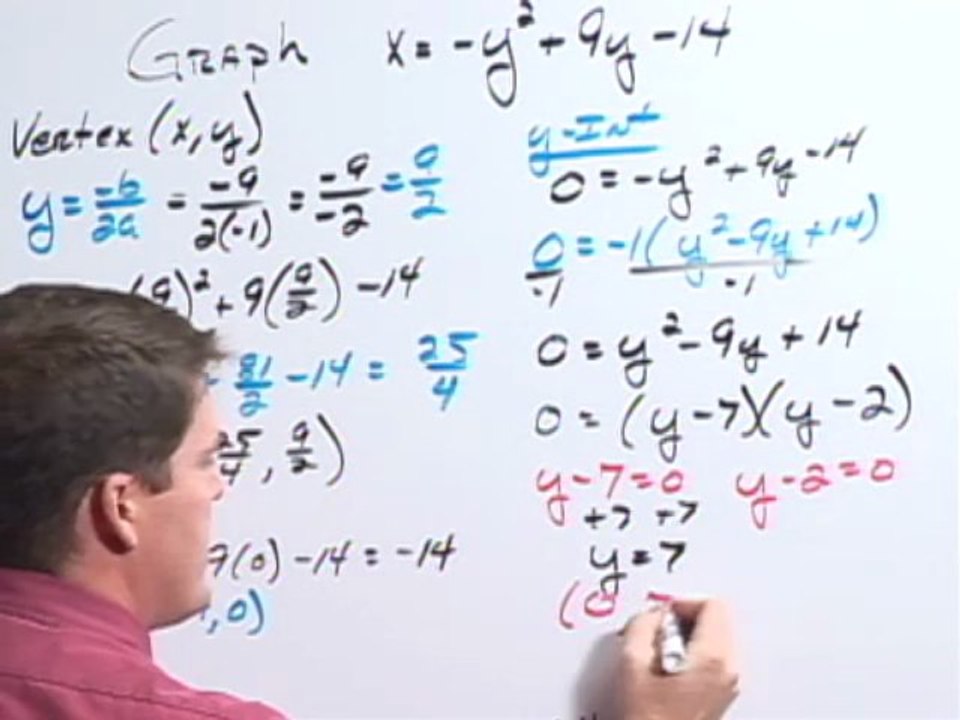 Graph x = -y² + 9y - 14
Vertex (x, y)
y = -b/2a = -9/2(-1) = -9/-2 = 9/2
(9)² + 9(9/2) - 14
81/2 - 14 = 25/4
25/4, 9/2)
7(0) - 14 = -14
, 0)
y-Int
0 = -y² + 9y - 14
0 = -1(y² - 9y + 14)
-1 -1
0 = y² - 9y + 14
0 = (y - 7)(y - 2)
y - 7 = 0 y - 2 = 0
+7 +7
y = 7
(0